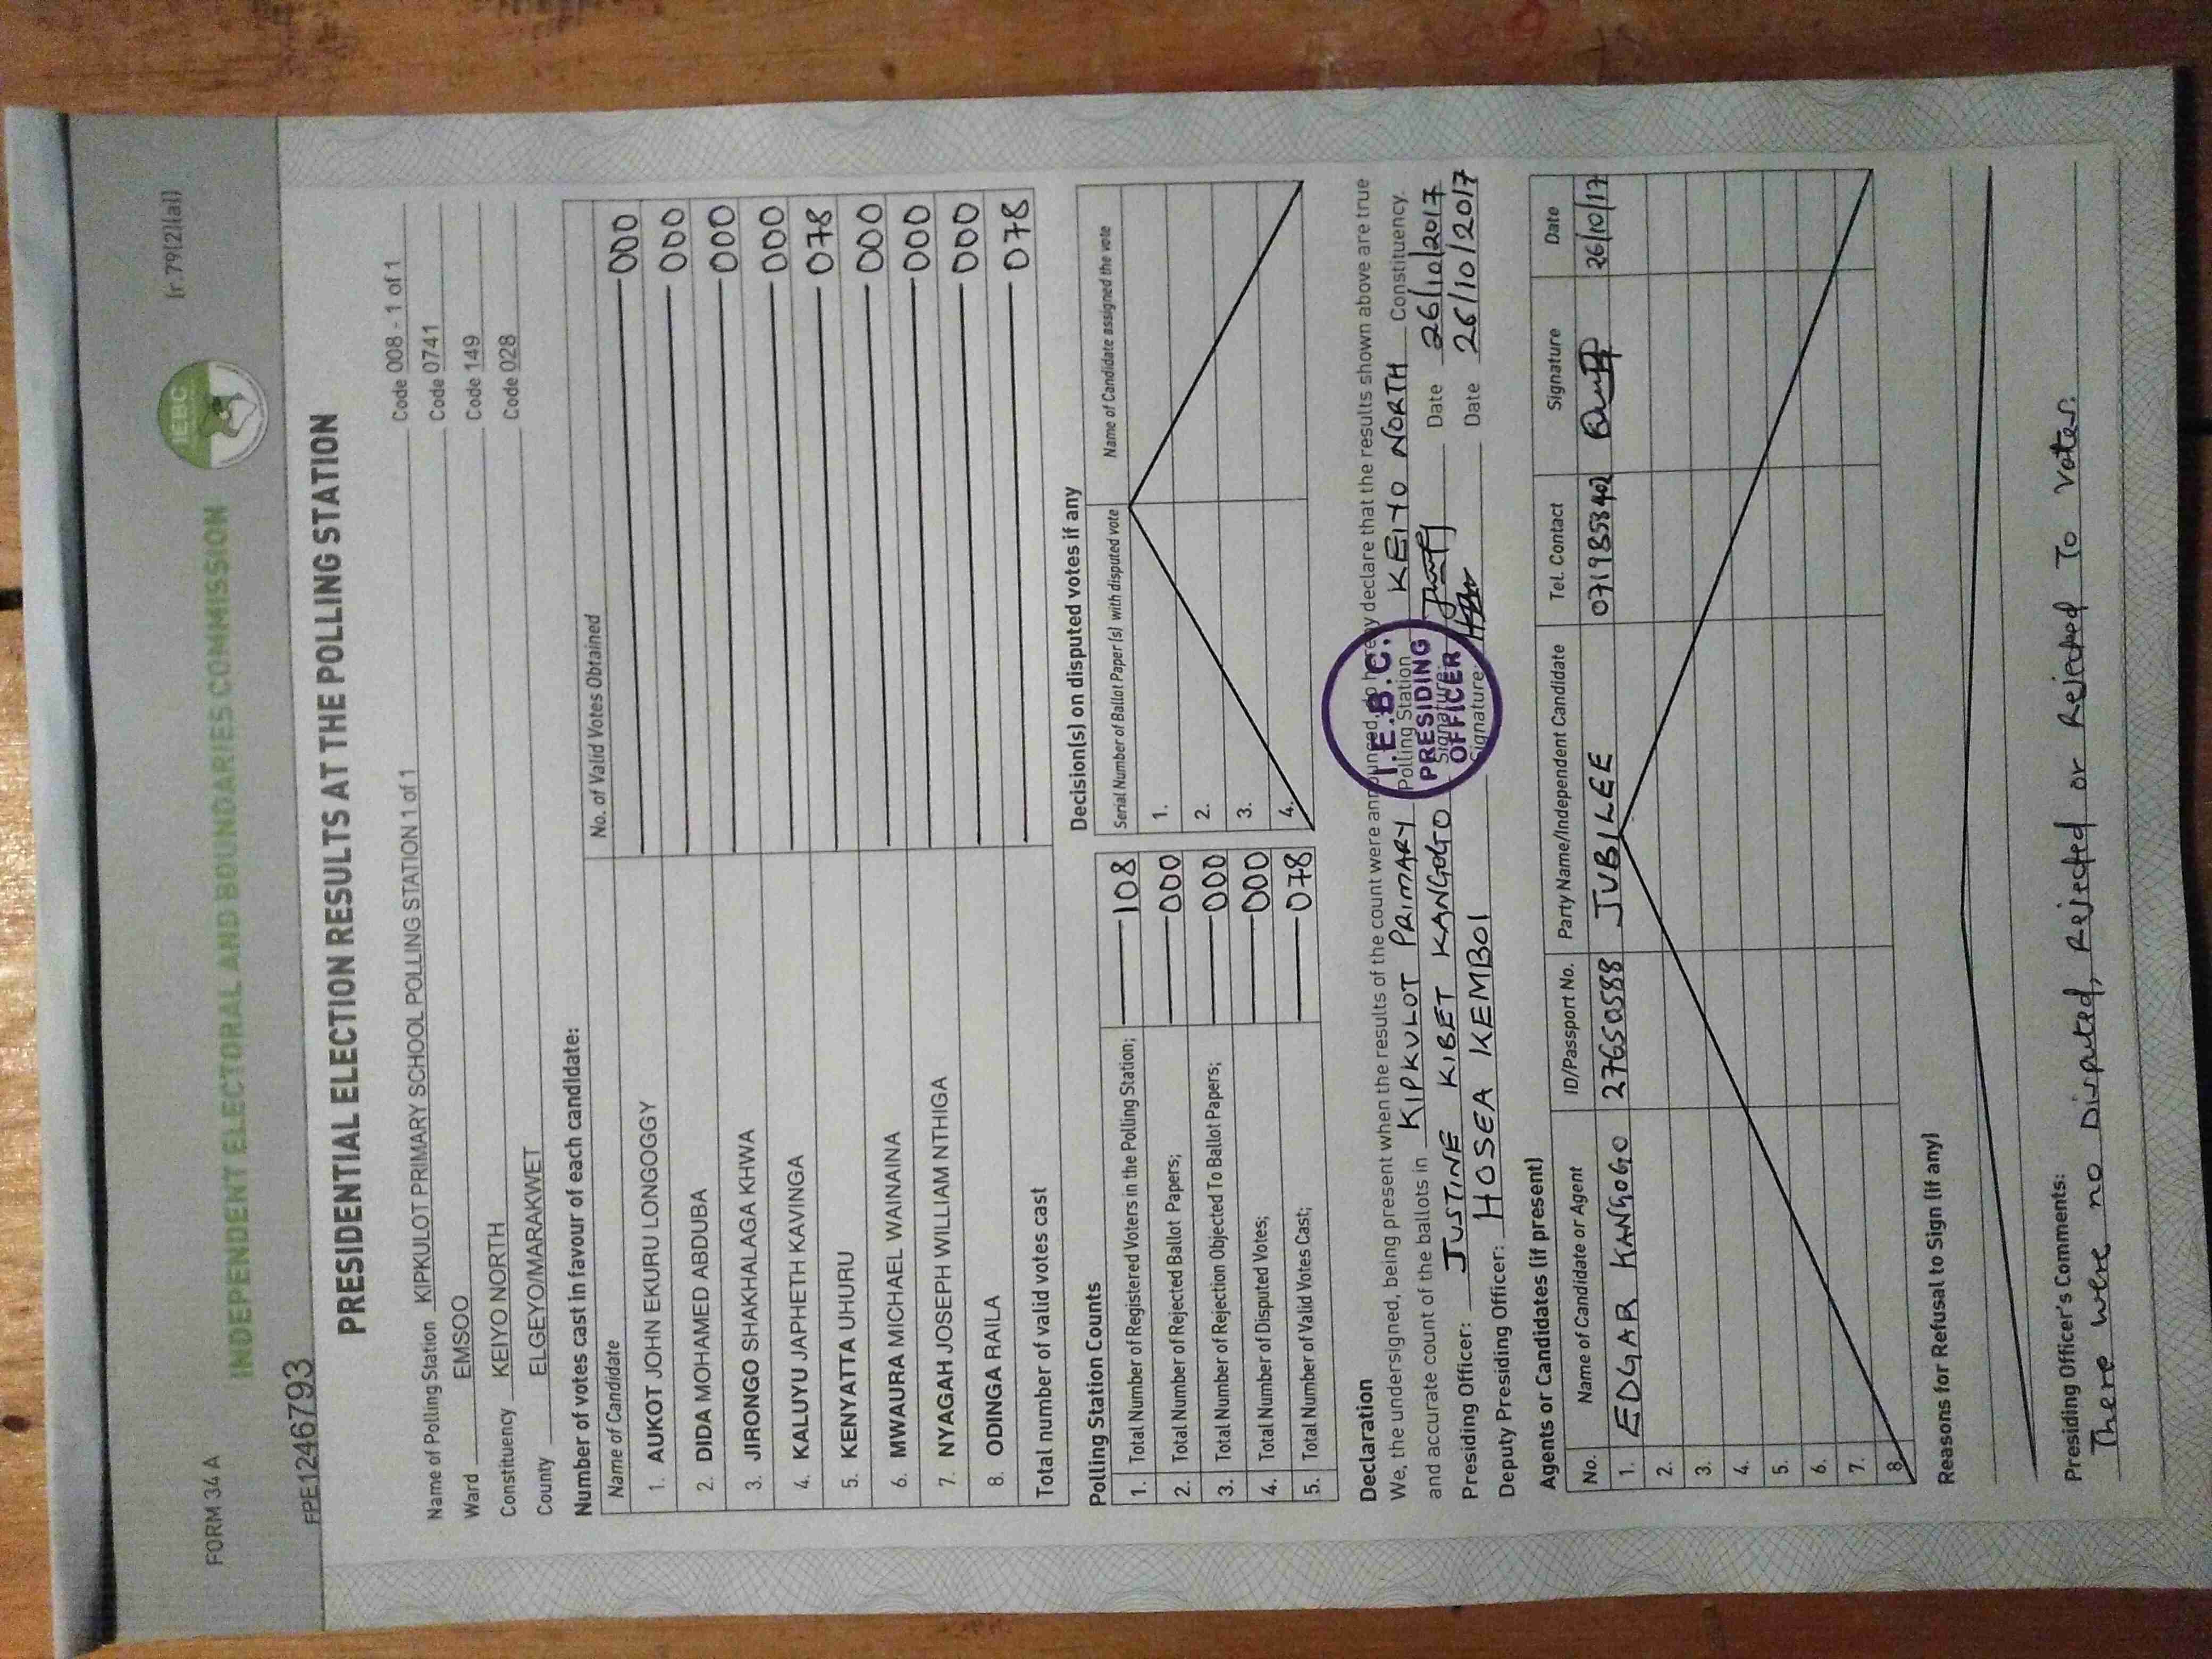 FORM 34 A
(r.79(2)(a))
IEBC
INDEPENDENT ELECTORAL AND BOUNDARIES COMMISSION
FPE1246793
PRESIDENTIAL ELECTION RESULTS AT THE POLLING STATION
Name of Polling Station KIPKULOT PRIMARY SCHOOL POLLING STATION 1 of 1 Code 008 - 1 of 1
Ward EMSOO Code 0741
Constituency KEIYO NORTH Code 149
County ELGEYO/MARAKWET Code 028
Number of votes cast in favour of each candidate:
Name of Candidate No. of Valid Votes Obtained
1. AUKOT JOHN EKURU LONGOGGY 000
2. DIDA MOHAMED ABDUBA 000
3. JIRONGO SHAKHALAGA KHWA 000
4. KALUYU JAPHETH KAVINGA 000
5. KENYATTA UHURU 078
6. MWAURA MICHAEL WAINAINA 000
7. NYAGAH JOSEPH WILLIAM NTHIGA 000
8. ODINGA RAILA 000
Total number of valid votes cast 078
Polling Station Counts
1. Total Number of Registered Voters in the Polling Station; 108
2. Total Number of Rejected Ballot Papers; 000
3. Total Number of Rejection Objected To Ballot Papers; 000
4. Total Number of Disputed Votes; 000
5. Total Number of Valid Votes Cast; 078
Decision(s) on disputed votes if any
Serial Number of Ballot Paper (s) with disputed vote Name of Candidate assigned the vote
1.
2.
3.
4.
Declaration
We, the undersigned, being present when the results of the count were announced, do hereby declare that the results shown above are true
and accurate count of the ballots in KIPKULOT PRIMARY Polling Station KEIYO NORTH Constituency.
Presiding Officer: JUSTINE KIBET KANGOGO Signature: Date 26/10/2017
Deputy Presiding Officer: HOSEA KEMBOI Signature: Date 26/10/2017
I.E.B.C.
PRESIDING
OFFICER
Agents or Candidates (if present)
No. Name of Candidate or Agent ID/Passport No. Party Name/Independent Candidate Tel. Contact Signature Date
1. EDGAR KANGOGO 27650588 JUBILEE 26/10/17
2.
3.
4.
5.
6.
7.
8.
Reasons for Refusal to Sign (if any)
Presiding Officer's Comments:
There were no Disputed, Rejected or Rejected To votes.